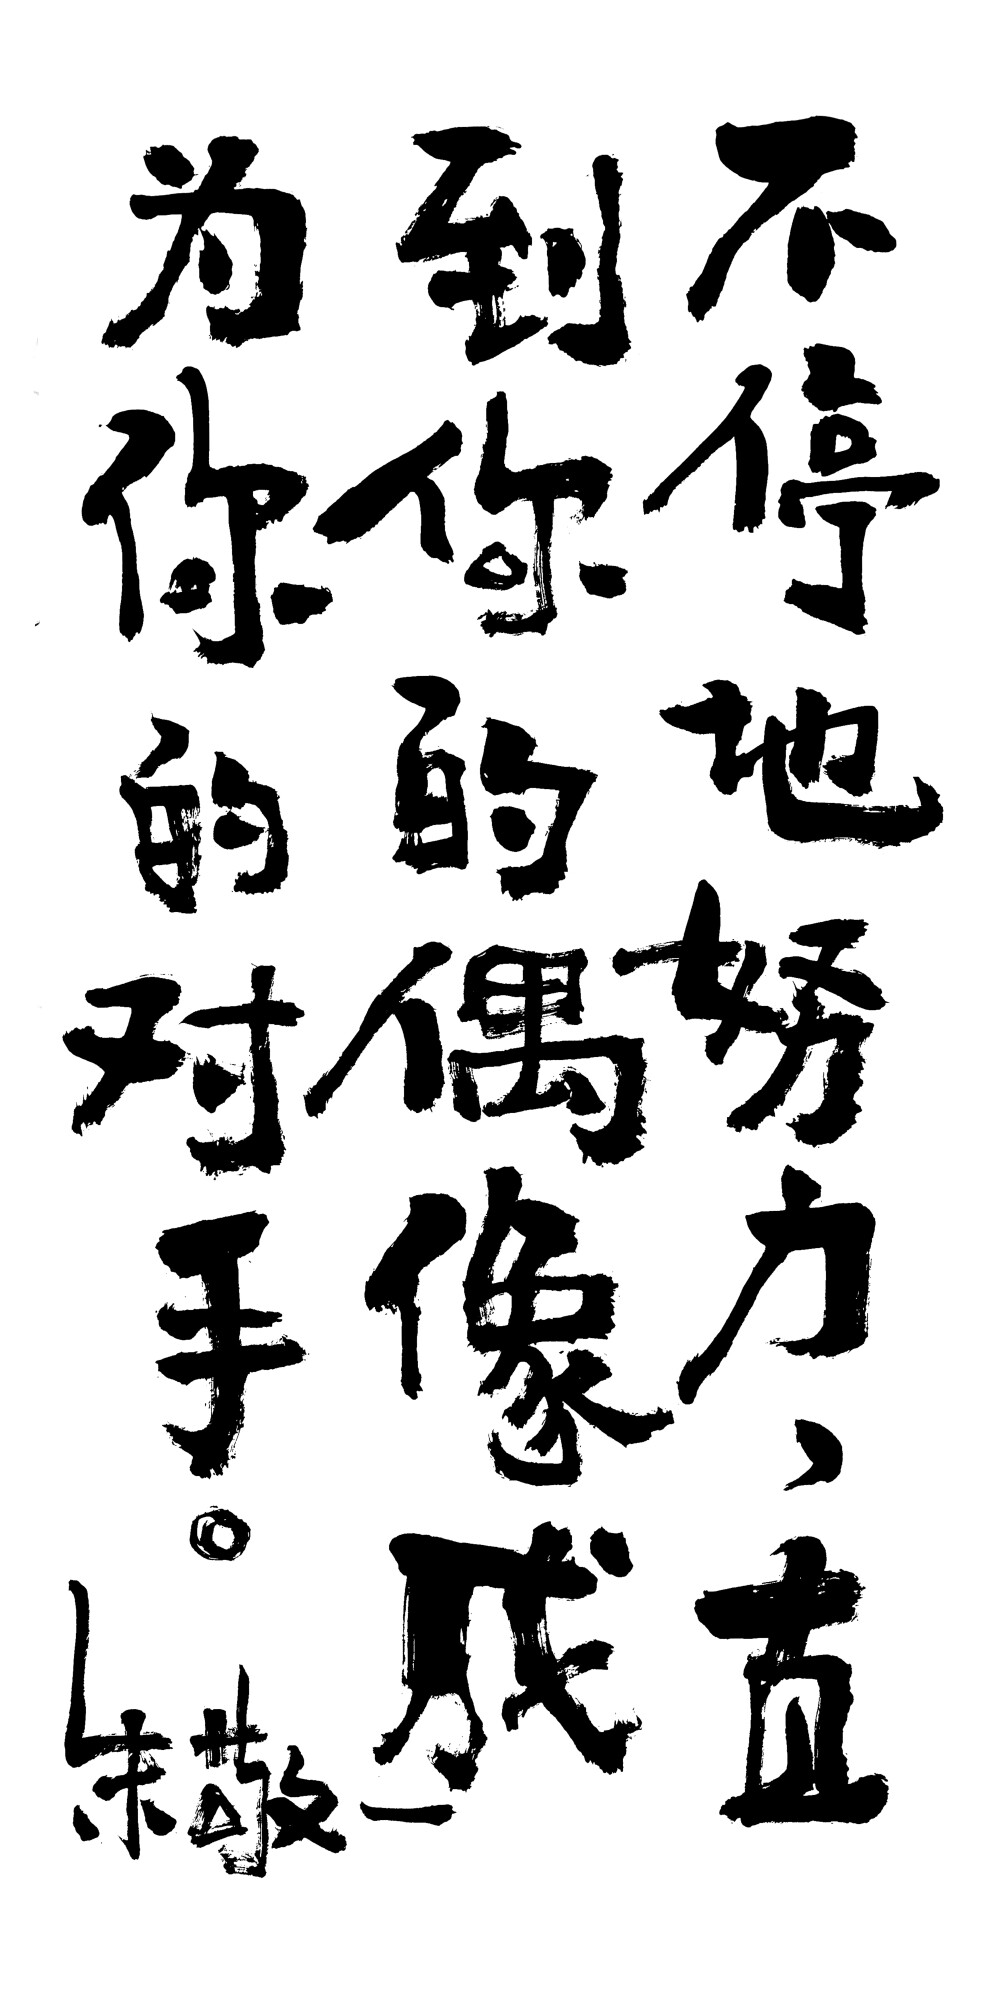 不停地努力、直
到你的偶像成
为你的对手。
朱敬一